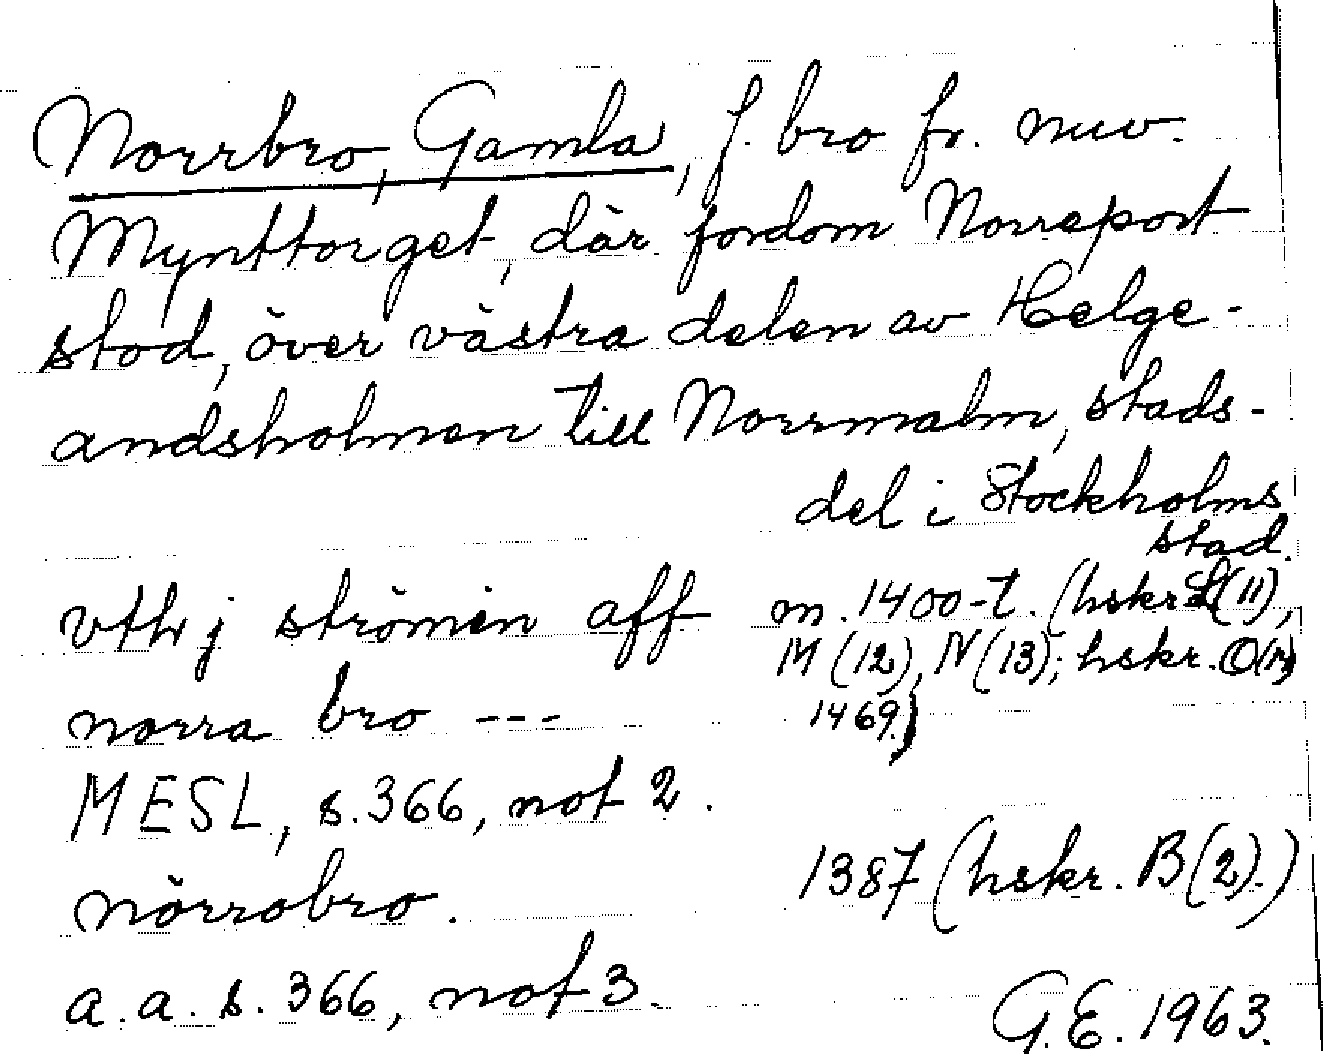 Norrbro, Gamla, f. bro fr. nuv.
Mynttorget, där fordom Norreport
stod, över västra delen av Helge-
andsholmen till Norrmalm, stads-
del i Stockholms
stad.
vthi strömen aff m. 1400-t. (hskr. L(11),
M (12), N (13); hskr. O(14)
norra bro --- 1469.)
MESL, s. 366, not 2.
nörrobro. 1387 (hskr. B(2).)
a. a. s. 366, not 3.
G.E. 1963.